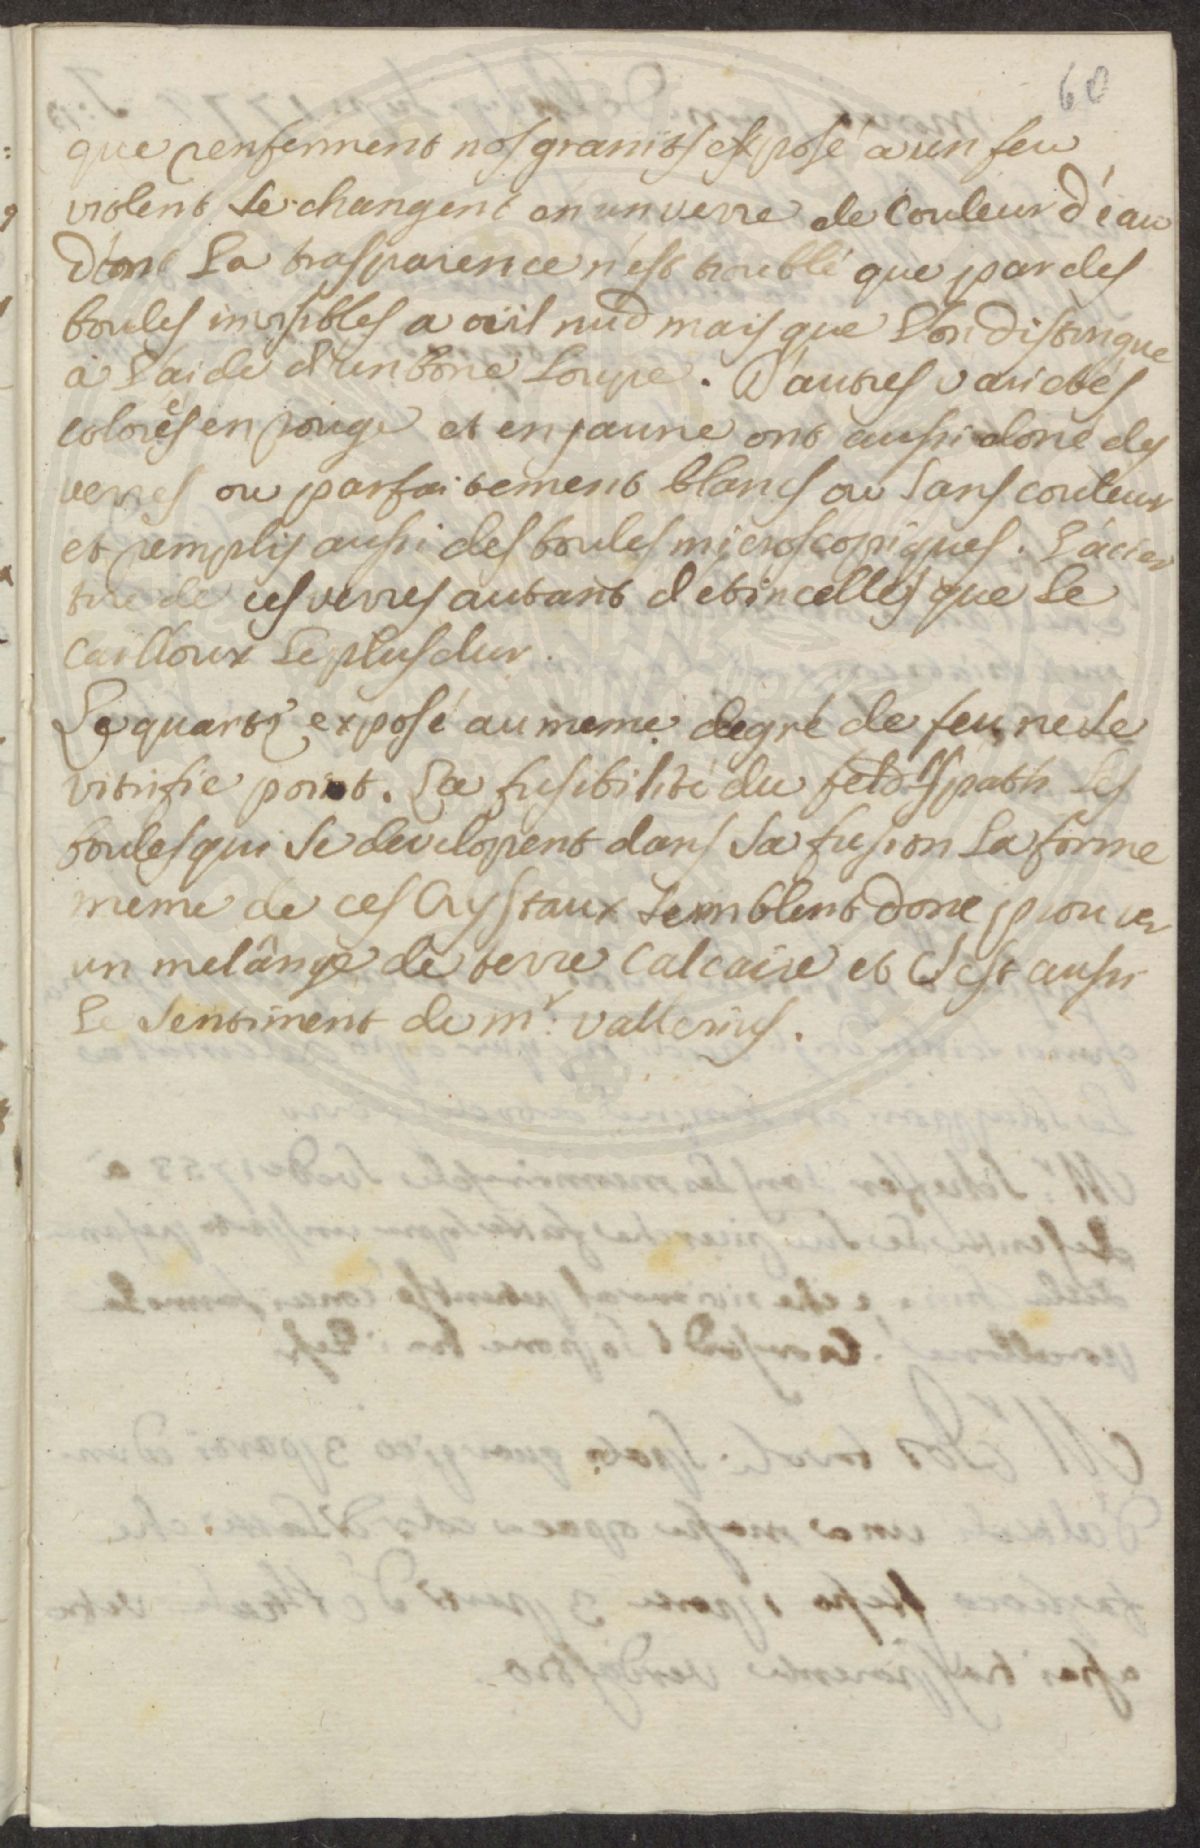 60
que renferment nos granits exposé a un feu
violent se changent en un verre de couleur d'éau
dont La trasparence n'est troublé que par des
boules invisibles a oüil nud mais que L'on distingue
à L'aide d'un bone Loupe. D'autres varietés
colorés en rouge et en jaune ont aussi doné des
verres ou parfaitement blancs ou sans couleur
et remplis aussi des boules microscopiques. L'acier
tire de ces verres autant d'etincelles que Le
cailloux Le plus dur.
Le quartz exposé au meme degré de feu ne se
vitrifie point. La fusibilité du feldspath Les
boules qui se developent dans sa fusion La forme
meme de ces Crystaux semblent donc prouver
un melânge de terre Calcaire et C'est aussi
Le sentiment de mr. Vallerius.